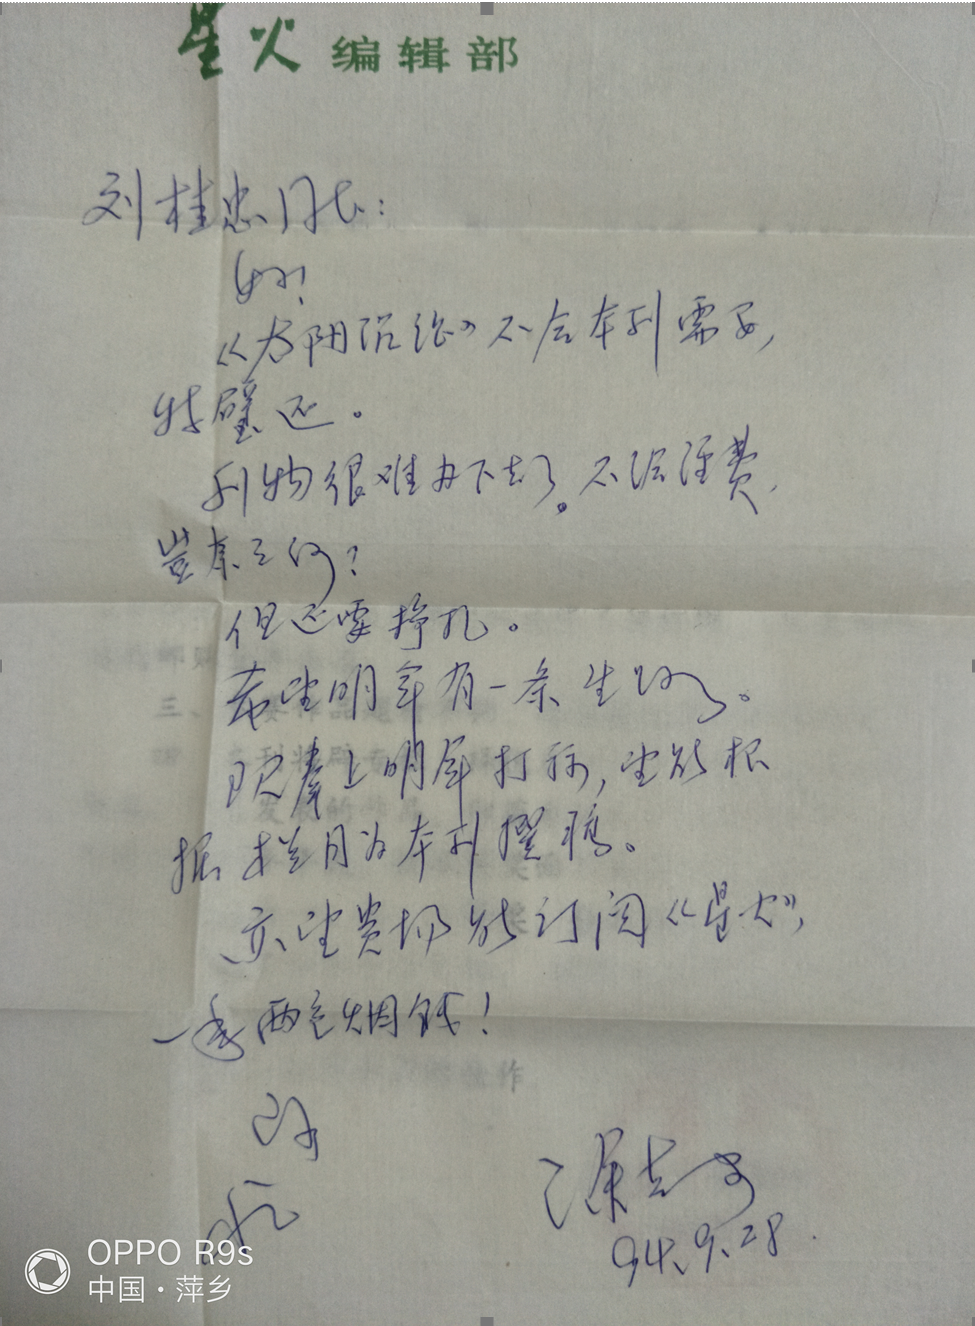 星火编辑部
刘桂忠同志:
好!
《太阳沉沦》不合本刊需要,
特璧还。
刊物很难办下去了。不给经费,
岂奈之何?
但还要挣扎。
希望明年有一条生路。
现奉上明年打算,望能根
据栏目为本刊撰稿。
亦望贵场能订阅《星火》,
一年两包烟钱!
即
祝
94.9.28.
三、
OPPO R9s
中国·萍乡